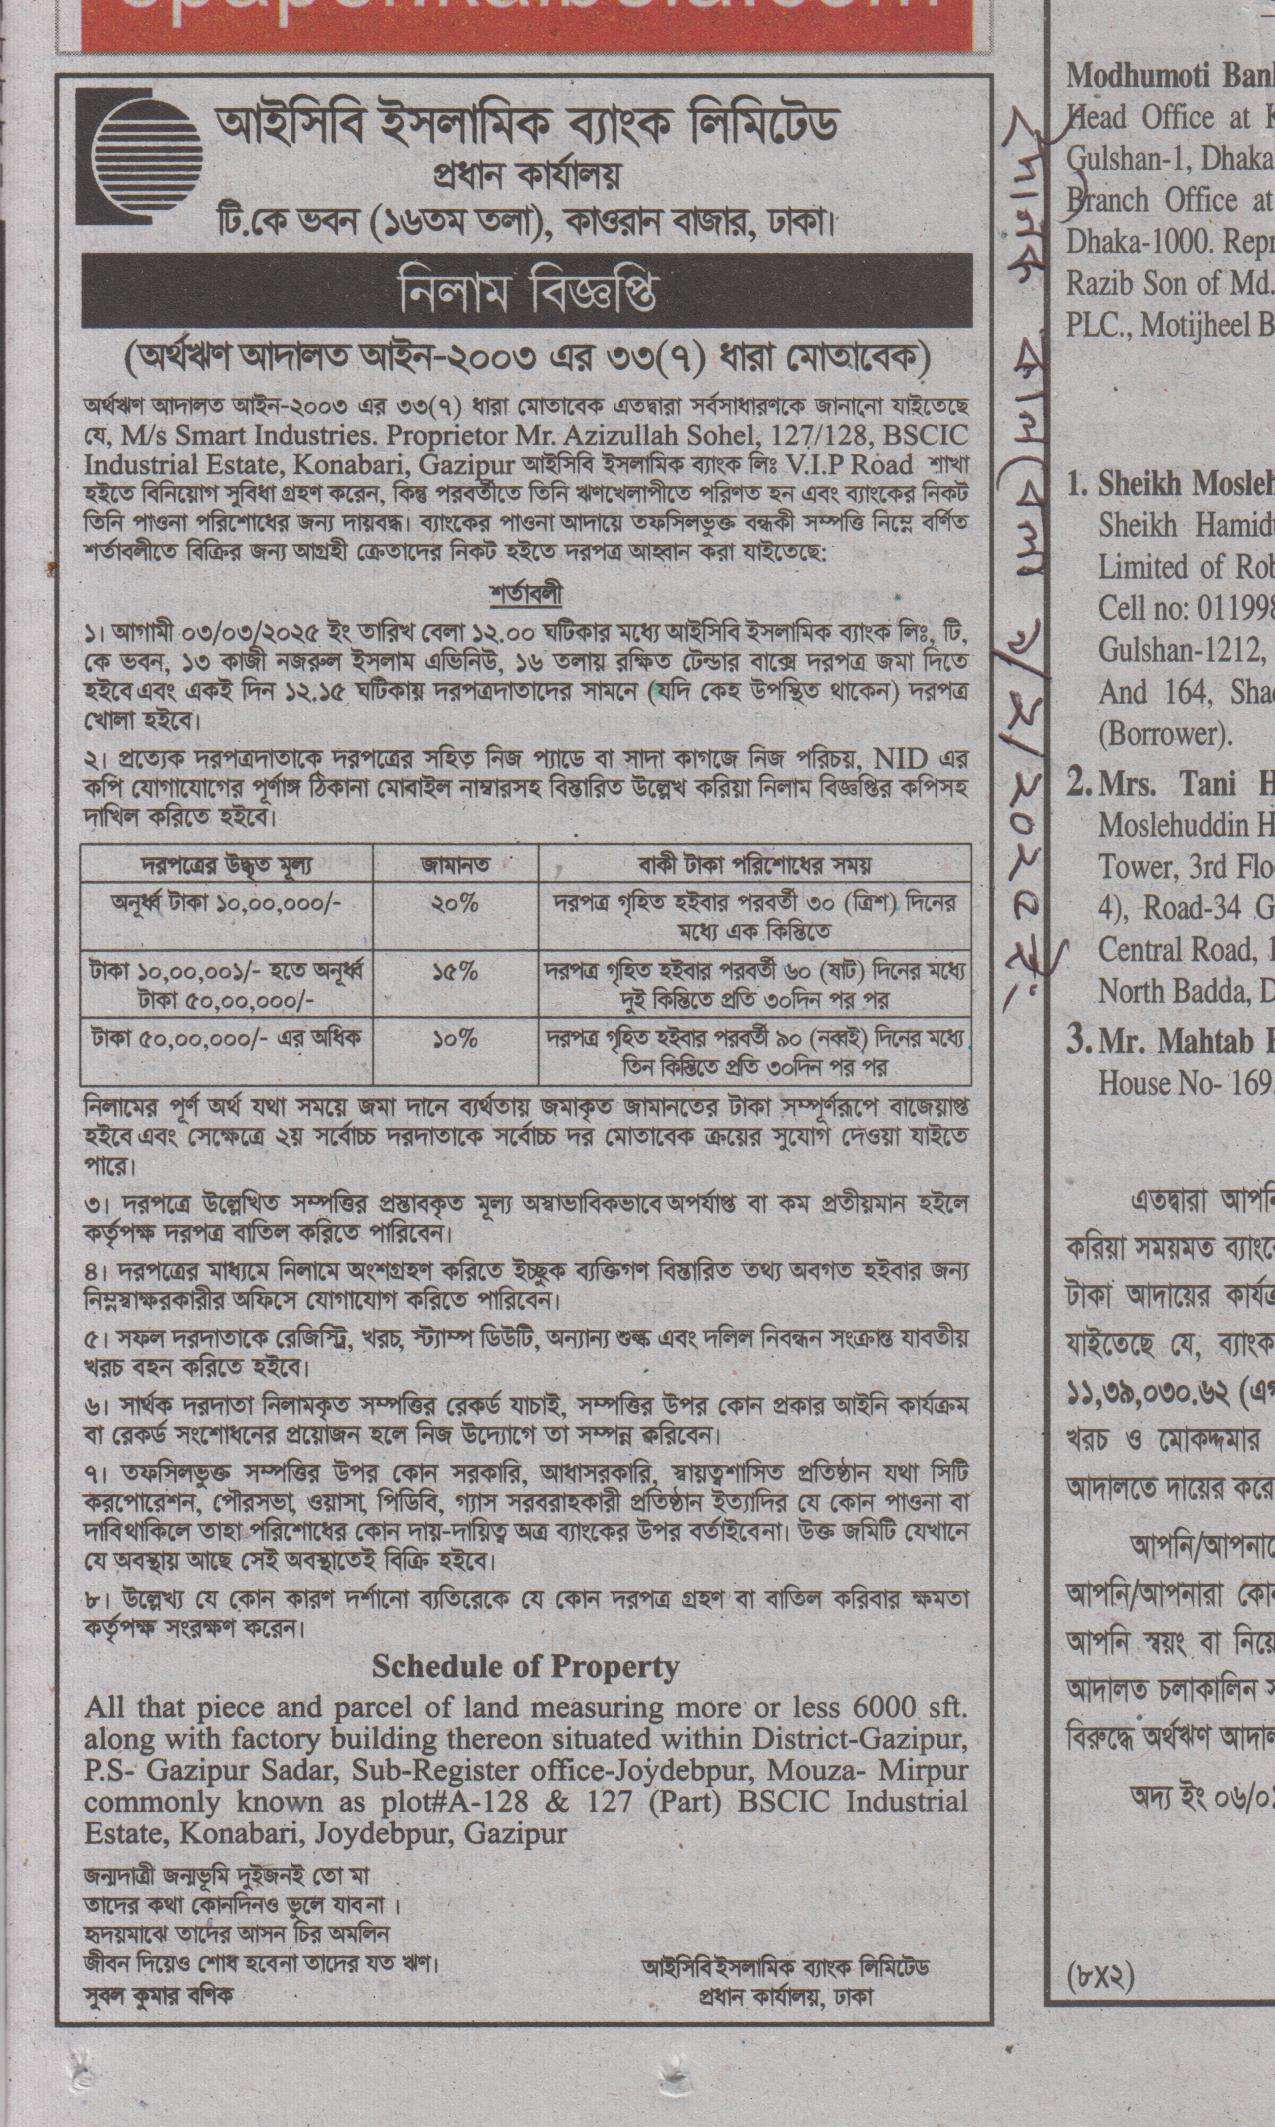 আইসিবি ইসলামিক ব্যাংক লিমিটেড
প্রধান কার্যালয়
টি.কে ভবন (১৬তম তলা), কাওরান বাজার, ঢাকা।
নিলাম বিজ্ঞপ্তি
(অর্থঋণ আদালত আইন-২০০৩ এর ৩৩(৭) ধারা মোতাবেক)
অর্থঋণ আদালত আইন-২০০৩ এর ৩৩(৭) ধারা মোতাবেক এতদ্বারা সর্বসাধারণকে জানানো যাইতেছে
যে, M/s Smart Industries. Proprietor Mr. Azizullah Sohel, 127/128, BSCIC
Industrial Estate, Konabari, Gazipur আইসিবি ইসলামিক ব্যাংক লিঃ V.I.P Road শাখা
হইতে বিনিয়োগ সুবিধা গ্রহণ করেন, কিন্তু পরবর্তীতে তিনি ঋণখেলাপীতে পরিণত হন এবং ব্যাংকের নিকট
তিনি পাওনা পরিশোধের জন্য দায়বদ্ধ। ব্যাংকের পাওনা আদায়ে তফসিলভুক্ত বন্ধকী সম্পত্তি নিম্নে বর্ণিত
শর্তাবলীতে বিক্রির জন্য আগ্রহী ক্রেতাদের নিকট হইতে দরপত্র আহ্বান করা যাইতেছে:
শর্তাবলী
১। আগামী ০৩/০৩/২০২৫ ইং তারিখ বেলা ১২.০০ ঘটিকার মধ্যে আইসিবি ইসলামিক ব্যাংক লিঃ, টি,
কে ভবন, ১৩ কাজী নজরুল ইসলাম এভিনিউ, ১৬ তলায় রক্ষিত টেন্ডার বাক্সে দরপত্র জমা দিতে
হইবে এবং একই দিন ১২.১৫ ঘটিকায় দরপত্রদাতাদের সামনে (যদি কেহ উপস্থিত থাকেন) দরপত্র
খোলা হইবে।
২। প্রত্যেক দরপত্রদাতাকে দরপত্রের সহিত নিজ প্যাডে বা সাদা কাগজে নিজ পরিচয়, NID এর
কপি যোগাযোগের পূর্ণাঙ্গ ঠিকানা মোবাইল নাম্বারসহ বিস্তারিত উল্লেখ করিয়া নিলাম বিজ্ঞপ্তির কপিসহ
দাখিল করিতে হইবে।
দরপত্রের উদ্ধৃত মূল্য জামানত বাকী টাকা পরিশোধের সময়
অনূর্ধ্ব টাকা ১০,০০,০০০/- ২০% দরপত্র গৃহিত হইবার পরবর্তী ৩০ (ত্রিশ) দিনের
মধ্যে এক কিস্তিতে
টাকা ১০,০০,০০১/- হতে অনূর্ধ্ব ১৫% দরপত্র গৃহিত হইবার পরবর্তী ৬০ (ষাট) দিনের মধ্যে
টাকা ৫০,০০,০০০/- দুই কিস্তিতে প্রতি ৩০দিন পর পর
টাকা ৫০,০০,০০০/- এর অধিক ১০% দরপত্র গৃহিত হইবার পরবর্তী ৯০ (নব্বই) দিনের মধ্যে
তিন কিস্তিতে প্রতি ৩০দিন পর পর
নিলামের পূর্ণ অর্থ যথা সময়ে জমা দানে ব্যর্থতায় জমাকৃত জামানতের টাকা সম্পূর্ণরূপে বাজেয়াপ্ত
হইবে এবং সেক্ষেত্রে ২য় সর্বোচ্চ দরদাতাকে সর্বোচ্চ দর মোতাবেক ক্রয়ের সুযোগ দেওয়া যাইতে
পারে।
৩। দরপত্রে উল্লেখিত সম্পত্তির প্রস্তাবকৃত মূল্য অস্বাভাবিকভাবে অপর্যাপ্ত বা কম প্রতীয়মান হইলে
কর্তৃপক্ষ দরপত্র বাতিল করিতে পারিবেন।
৪। দরপত্রের মাধ্যমে নিলামে অংশগ্রহণ করিতে ইচ্ছুক ব্যক্তিগণ বিস্তারিত তথ্য অবগত হইবার জন্য
নিম্নস্বাক্ষরকারীর অফিসে যোগাযোগ করিতে পারিবেন।
৫। সফল দরদাতাকে রেজিস্ট্রি, খরচ, স্ট্যাম্প ডিউটি, অন্যান্য শুল্ক এবং দলিল নিবন্ধন সংক্রান্ত যাবতীয়
খরচ বহন করিতে হইবে।
৬। সার্থক দরদাতা নিলামকৃত সম্পত্তির রেকর্ড যাচাই, সম্পত্তির উপর কোন প্রকার আইনি কার্যক্রম
বা রেকর্ড সংশোধনের প্রয়োজন হলে নিজ উদ্যোগে তা সম্পন্ন করিবেন।
৭। তফসিলভুক্ত সম্পত্তির উপর কোন সরকারি, আধাসরকারি, স্বায়ত্বশাসিত প্রতিষ্ঠান যথা সিটি
করপোরেশন, পৌরসভা, ওয়াসা, পিডিবি, গ্যাস সরবরাহকারী প্রতিষ্ঠান ইত্যাদির যে কোন পাওনা বা
দাবিথাকিলে তাহা পরিশোধের কোন দায়-দায়িত্ব অত্র ব্যাংকের উপর বর্তাইবেনা। উক্ত জমিটি যেখানে
যে অবস্থায় আছে সেই অবস্থাতেই বিক্রি হইবে।
৮। উল্লেখ্য যে কোন কারণ দর্শানো ব্যতিরেকে যে কোন দরপত্র গ্রহণ বা বাতিল করিবার ক্ষমতা
কর্তৃপক্ষ সংরক্ষণ করেন।
Schedule of Property
All that piece and parcel of land measuring more or less 6000 sft.
along with factory building thereon situated within District-Gazipur,
P.S- Gazipur Sadar, Sub-Register office-Joydebpur, Mouza- Mirpur
commonly known as plot#A-128 & 127 (Part) BSCIC Industrial
Estate, Konabari, Joydebpur, Gazipur
জন্মদাত্রী জন্মভূমি দুইজনই তো মা
তাদের কথা কোনদিনও ভুলে যাব না ।
হৃদয়মাঝে তাদের আসন চির অমলিন
জীবন দিয়েও শোধ হবেনা তাদের যত ঋণ।
সুবল কুমার বণিক
আইসিবি ইসলামিক ব্যাংক লিমিটেড
প্রধান কার্যালয়, ঢাকা
দৈনিক কালবেলা ২/২/২০২৫ইং
Modhumoti Ban
Head Office at
Gulshan-1, Dhaka
Branch Office at
Dhaka-1000. Repr
Razib Son of Md.
PLC., Motijheel B
1. Sheikh Mosleh
Sheikh Hamid
Limited of Rob
Cell no: 011998
Gulshan-1212,
And 164, Sha
(Borrower).
2. Mrs. Tani H
Moslehuddin H
Tower, 3rd Flo
4), Road-34 G
Central Road, 1
North Badda, D
3. Mr. Mahtab
House No- 169
এতদ্বারা আপনি
করিয়া সময়মত ব্যাংকে
টাকা আদায়ের কার্যক্র
যাইতেছে যে, ব্যাংক
১১,৩৯,০৩০.৬২ (এগ
খরচ ও মোকদ্দমার
আদালতে দায়ের করে
আপনি/আপনাদে
আপনি/আপনারা কোন
আপনি স্বয়ং বা নিয়ে
আদালত চলাকালিন স
বিরুদ্ধে অর্থঋণ আদাল
অদ্য ইং ০৬/০
(৮X২)